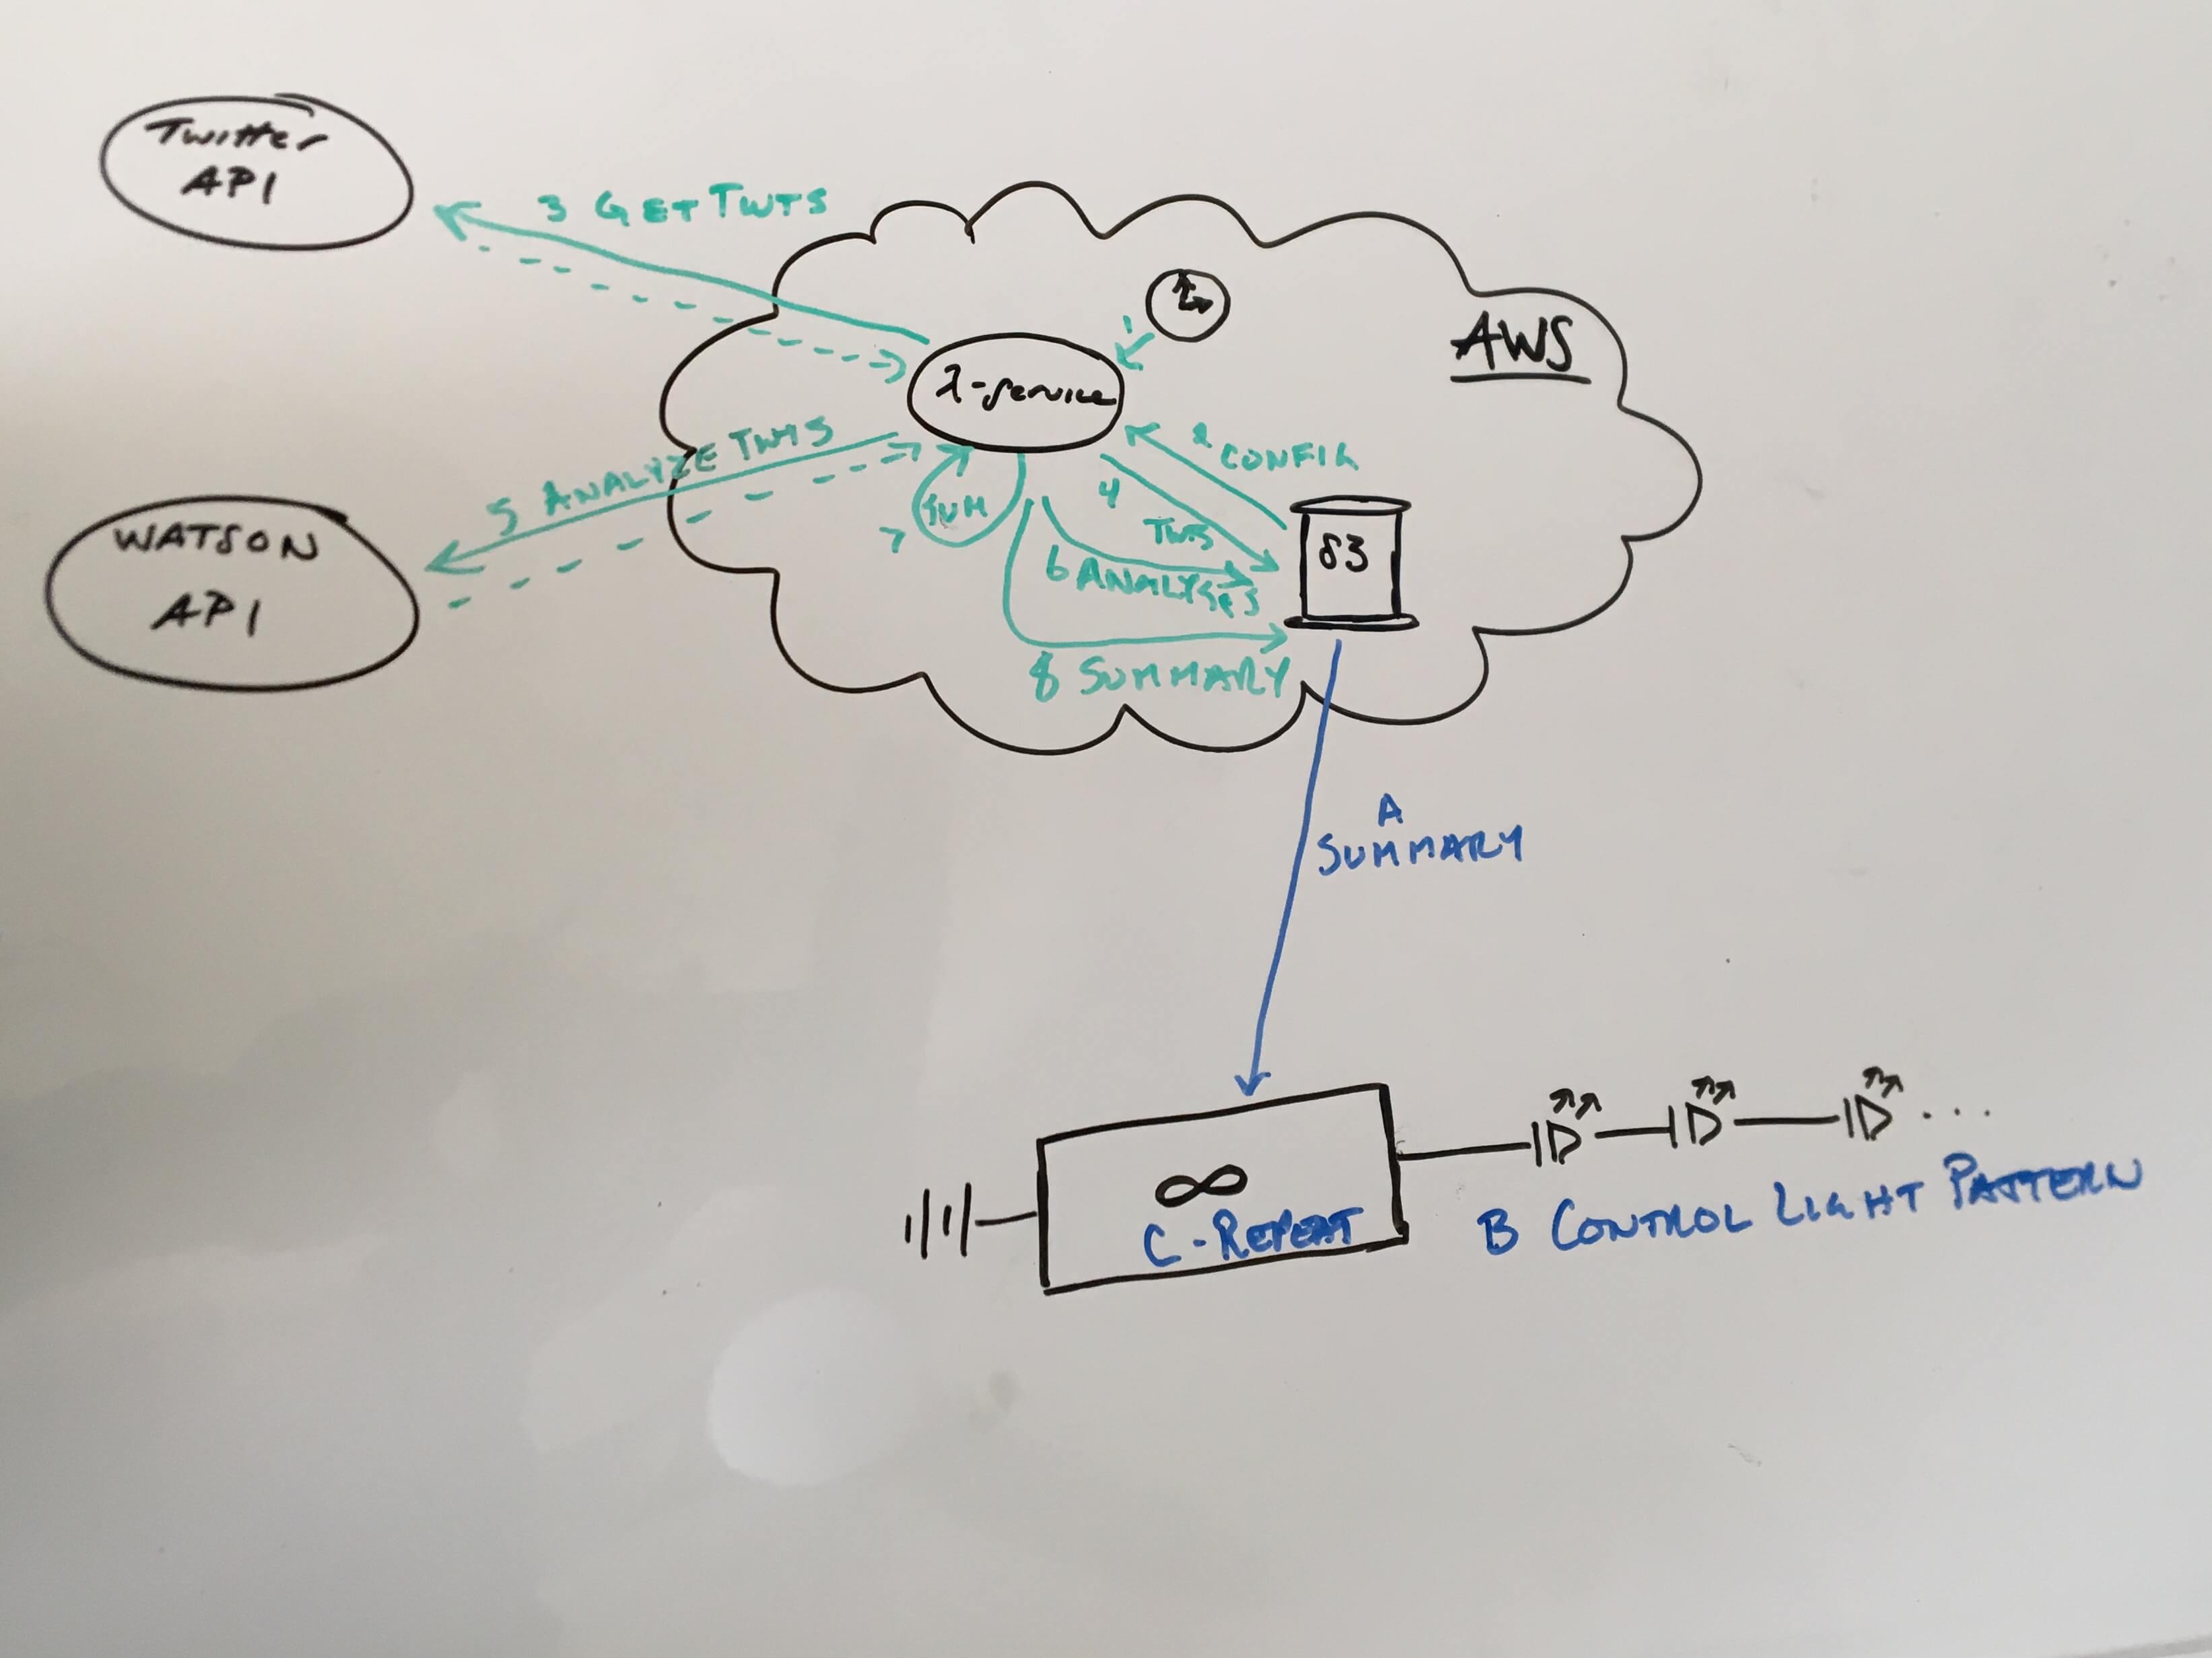 Twitter
API
3 GET TWTS
AWS
1
λ-service
2 CONFIG
5 ANALYZE TWTS
WATSON
API
7
SUM
4
TWTS
S3
6 ANALYSES
8 SUMMARY
A
SUMMARY
∞
C - REPEAT
B CONTROL LIGHT PATTERN